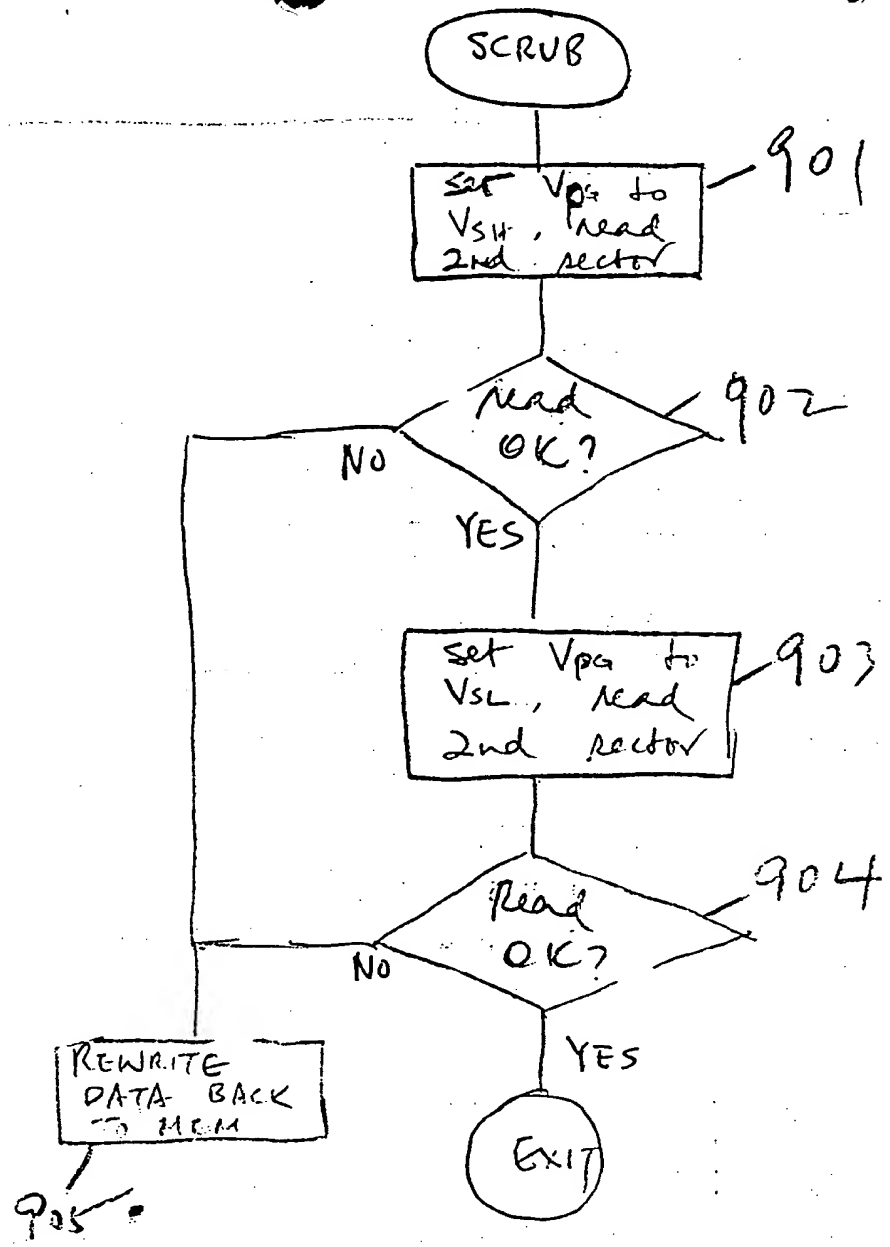 SCRUB
901
set VPG to
VSH, read
2nd sector
read
OK?
902
NO
YES
set VPG to
VSL, read
2nd sector
903
Read
OK?
904
NO
YES
REWRITE
DATA BACK
TO MEM
905
EXIT